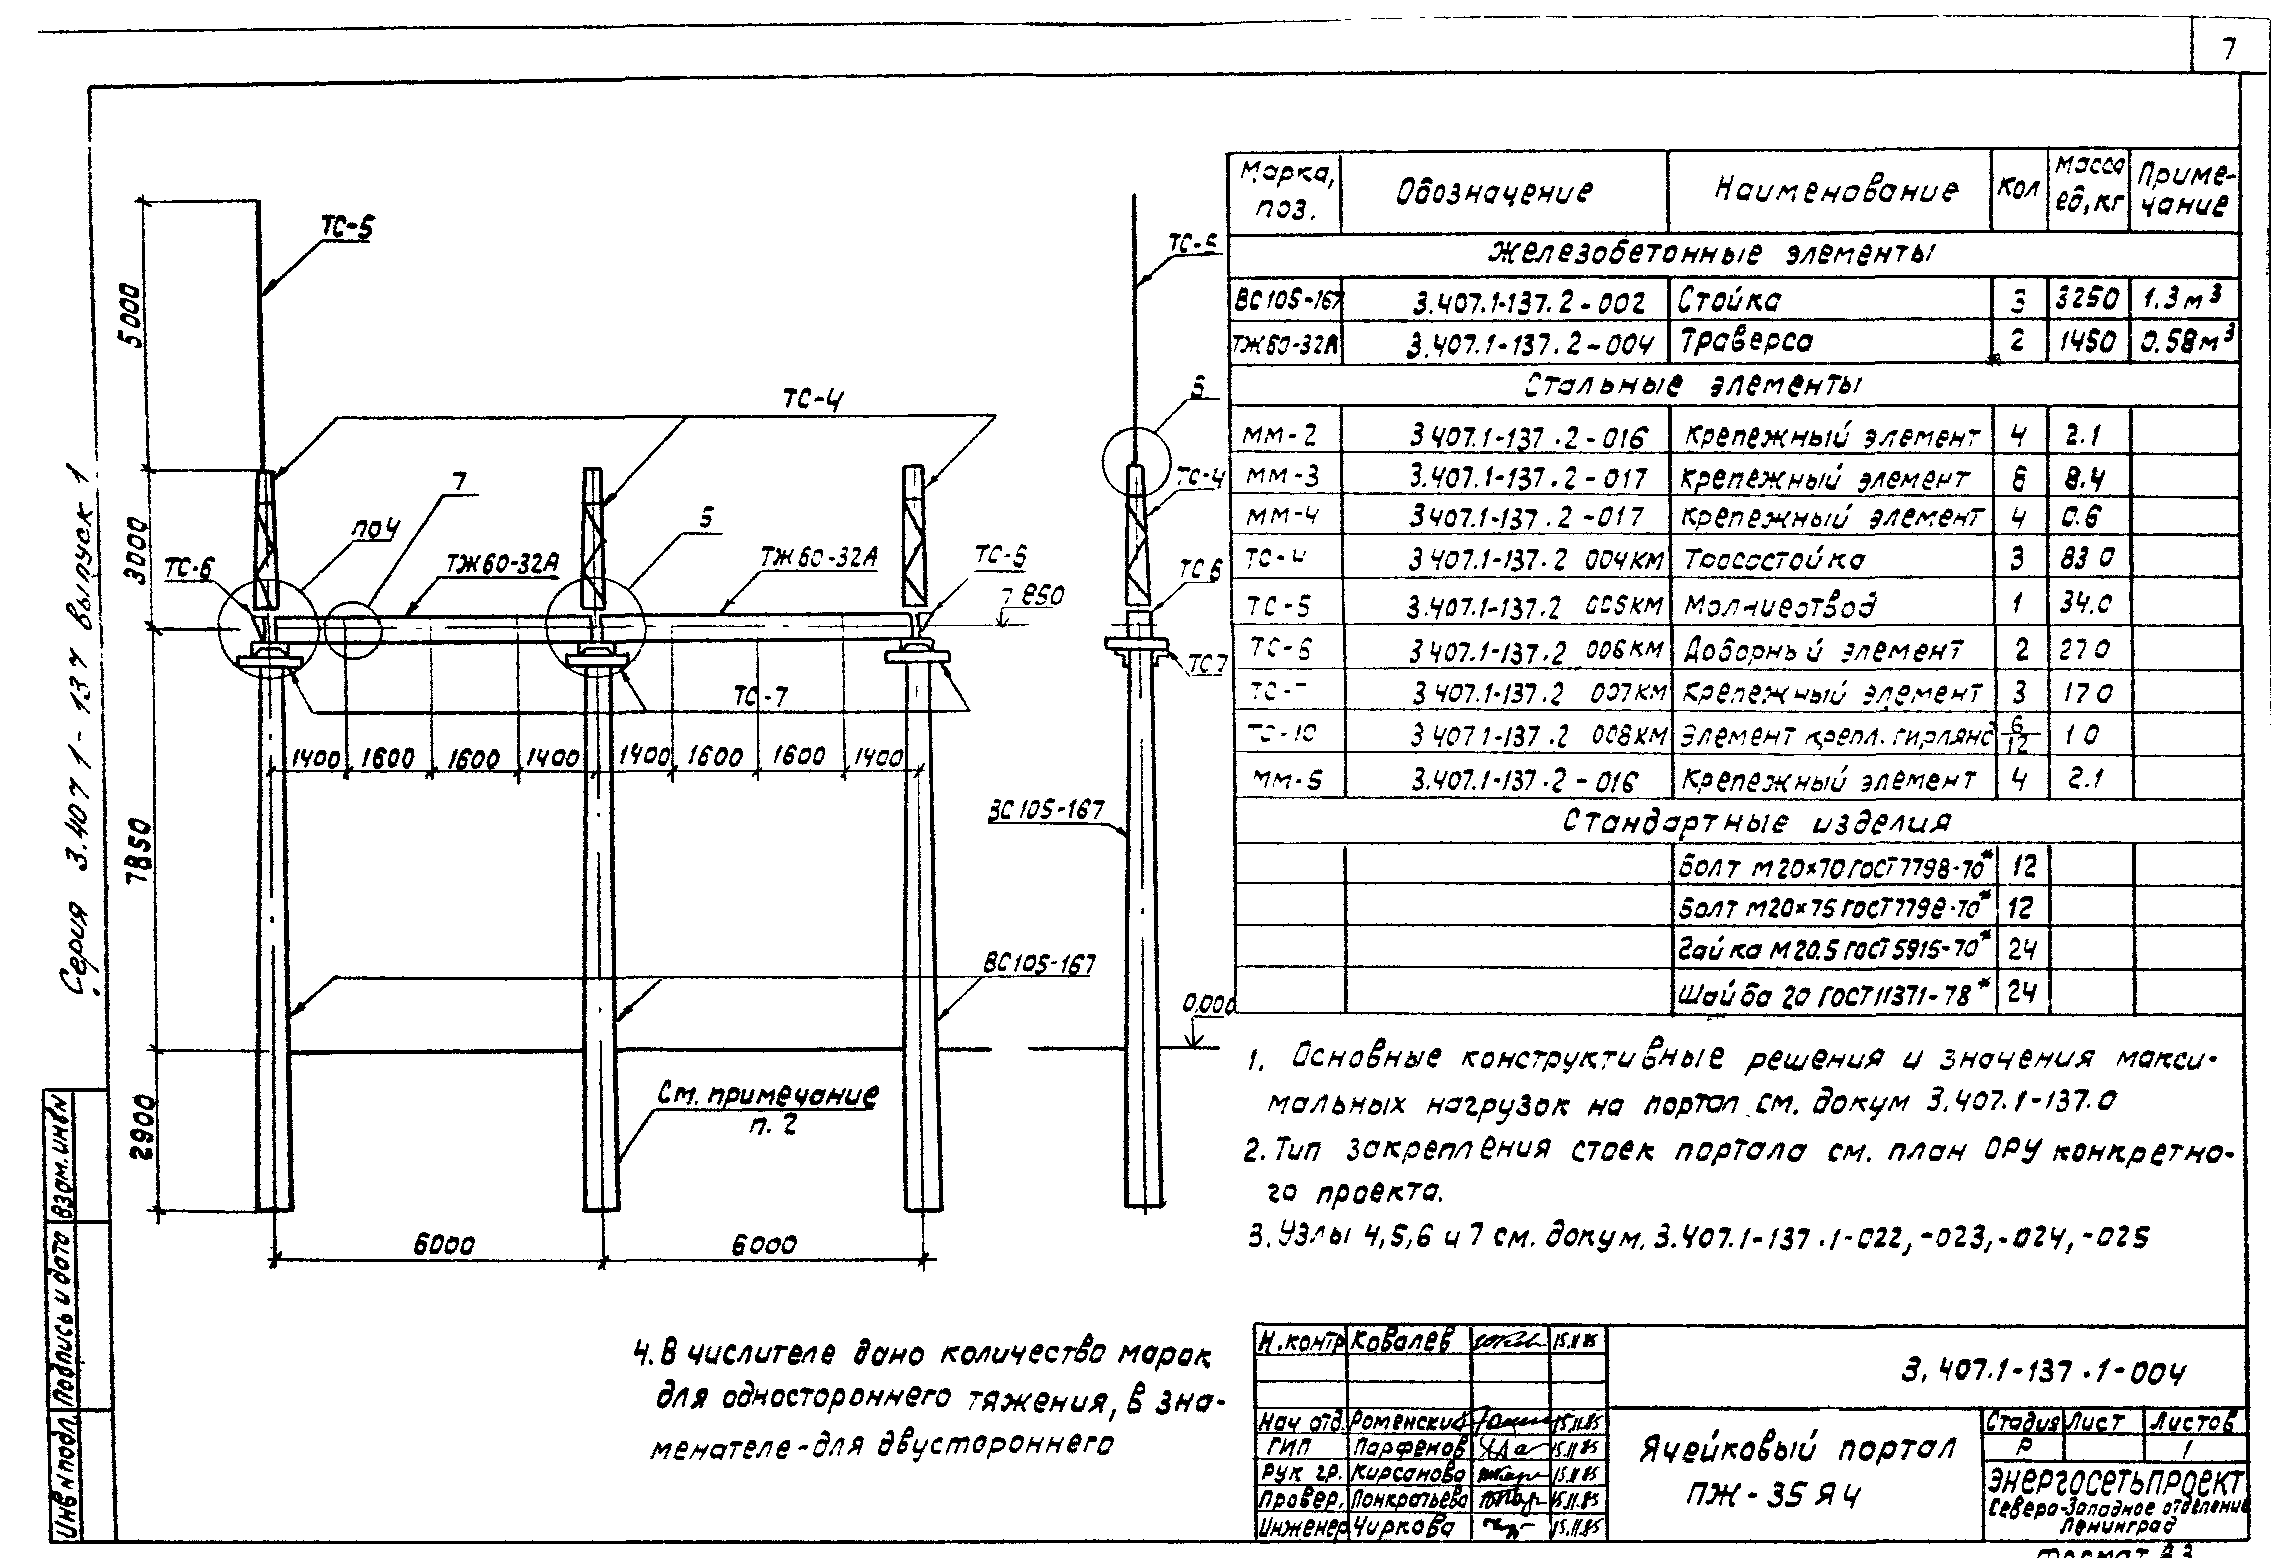 7
Серия 3.407 1-137 выпуск 1
ТС-5
5000
ТС-4
7
по 4
5
3000
ТС-6
ТЖ60-32А
ТЖ60-32А
ТС-6
7 850
ТС-7
1400 1600 1600 1400 1400 1600 1600 1400
7850
ВС105-167
0,000
См. примечание
п. 2
2900
6000 6000
ТС-5
6
ТС-4
ТС 6
ТС 7
ВС105-167
Марка, поз. Обозначение Наименование Кол Масса ед, кг Приме-чание
Железобетонные элементы
ВС105-167 3.407.1-137.2-002 Стойка 3 3250 1.3 м³
ТЖ60-32А 3.407.1-137.2-004 Траверса 2 1450 0.58 м³
Стальные элементы
ММ-2 3 407.1-137.2-016 Крепежный элемент 4 2.1
ММ-3 3.407.1-137.2-017 Крепежный элемент 6 8.4
ММ-4 3 407.1-137.2-017 Крепежный элемент 4 0.6
ТС-4 3.407.1-137.2 004КМ Тросостойка 3 83 0
ТС-5 3.407.1-137.2 005КМ Молниеотвод 1 34.0
ТС-6 3 407.1-137.2 006КМ Доборный элемент 2 27 0
ТС-7 3 407.1-137.2 007КМ Крепежный элемент 3 17 0
ТС-10 3 407 1-137.2 008КМ Элемент крепл. гирлянд 6/12 1 0
ММ-5 3.407.1-137.2-016 Крепежный элемент 4 2.1
Стандартные изделия
Болт М20×70 ГОСТ 7798-70* 12
Болт М20×75 ГОСТ 7798-70* 12
Гайка М20.5 ГОСТ 5915-70* 24
Шайба 20 ГОСТ 11371-78* 24
1. Основные конструктивные решения и значения макси-
мальных нагрузок на портал см. докум 3.407.1-137.0
2. Тип закрепления стоек портала см. план ОРУ конкретно-
го проекта.
3. Узлы 4,5,6 и 7 см. докум. 3.407.1-137.1-022, -023, -024, -025
4. В числителе дано количество марок
для одностороннего тяжения, в зна-
менателе - для двустороннего
Взам. инв N
Подпись и дата
Инв N подл.
Н.контр Ковалев 15.11.85
Нач отд. Роменский 15.11.85
ГИП Парфенов 15.11.85
Рук гр. Кирсанова 15.11.85
Провер. Панкратьева 15.11.85
Инженер Чиркова 15.11.85
3.407.1-137.1-004
Ячейковый портал
ПЖ-35 Я4
Стадия Лист Листов
Р 1
Энергосетьпроект
Северо-Западное отделение
Ленинград
Формат А3